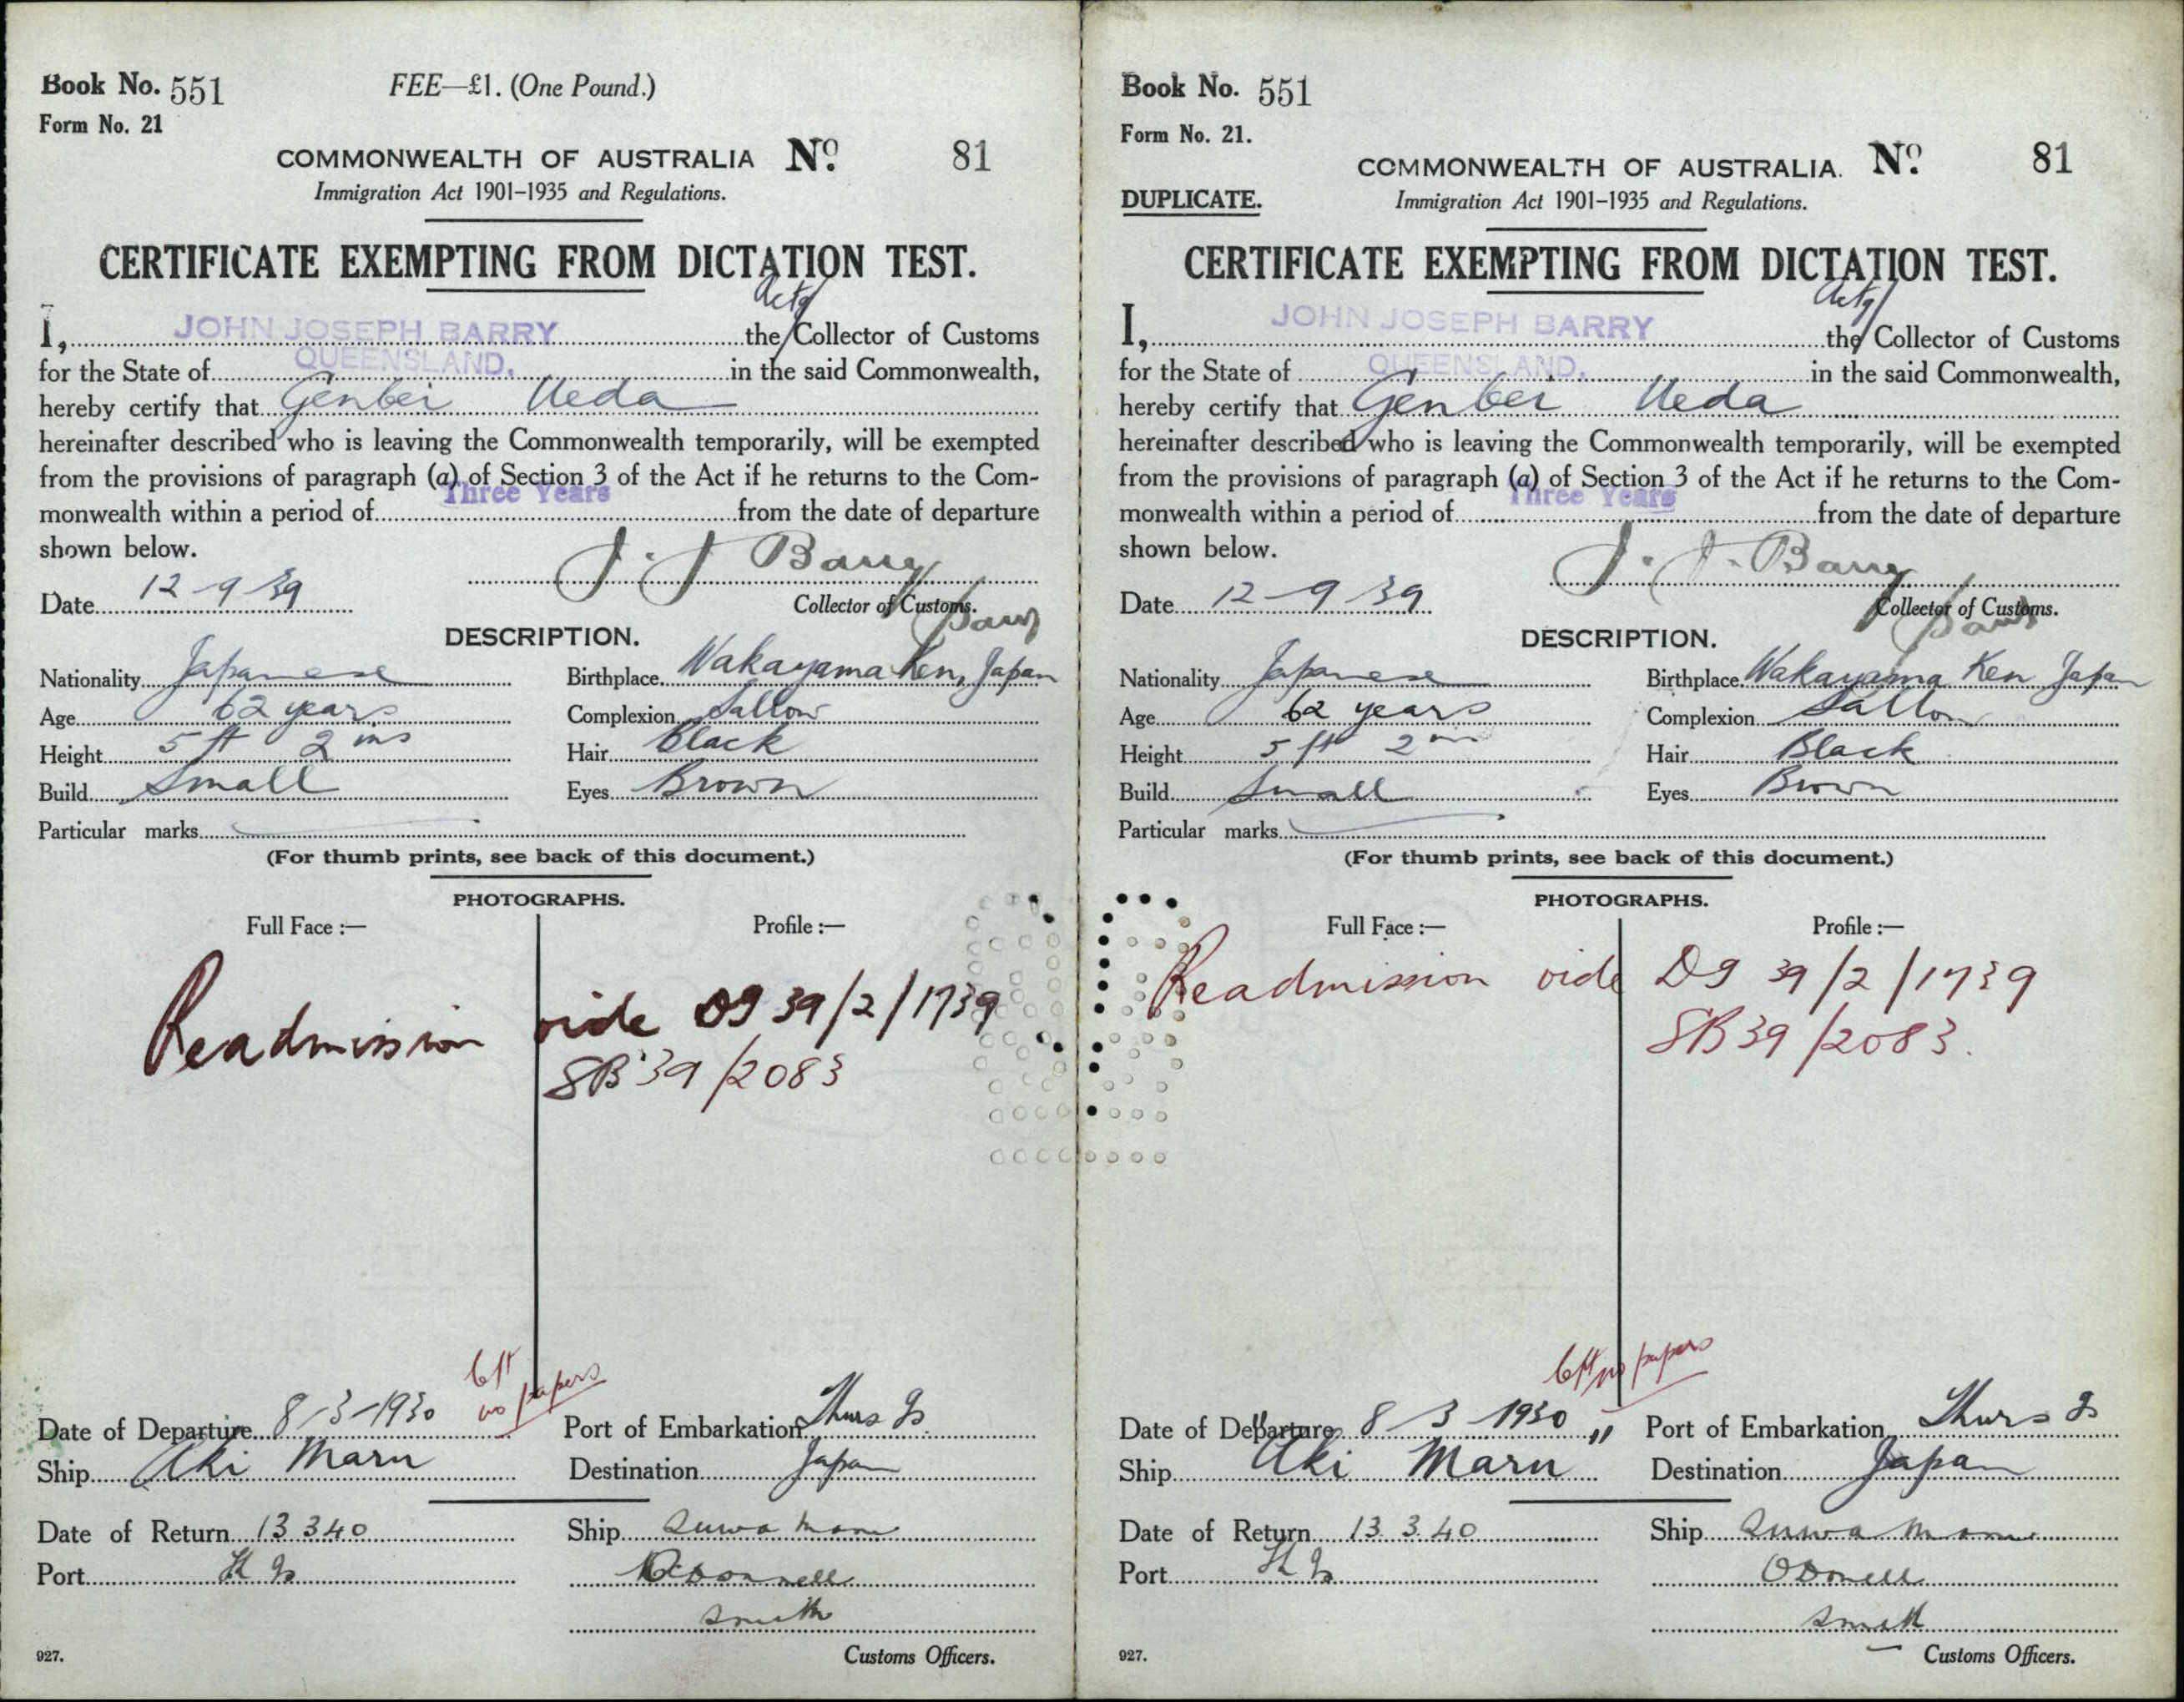 Book No. 551
FEE—£1. (One Pound.)
Form No. 21
COMMONWEALTH OF AUSTRALIA No. 81
Immigration Act 1901–1935 and Regulations.
CERTIFICATE EXEMPTING FROM DICTATION TEST.
Actg
I, JOHN JOSEPH BARRY the/Collector of Customs
for the State of QUEENSLAND. in the said Commonwealth,
hereby certify that Genbei Ueda
hereinafter described who is leaving the Commonwealth temporarily, will be exempted
from the provisions of paragraph (a) of Section 3 of the Act if he returns to the Com-
monwealth within a period of Three Years from the date of departure
shown below.
J. J Barry
Date 12-9-39
Collector of Customs.
DESCRIPTION.
Nationality Japanese Birthplace Wakayama Ken, Japan
Age 62 years Complexion Sallow
Height 5 ft 2 ins Hair Black
Build Small Eyes Brown
Particular marks
(For thumb prints, see back of this document.)
PHOTOGRAPHS.
Full Face :— Profile :—
Readmission vide D9 39/2/1739
SB 39/2083
left
no papers
Date of Departure 8-3-1930 Port of Embarkation Thurs Is
Ship Aki Maru Destination Japan
Date of Return 13 3 40 Ship Suwa Maru
Port Th Is
O'Donnell
Smith
927.
Customs Officers.
Book No. 551
Form No. 21.
COMMONWEALTH OF AUSTRALIA. No. 81
DUPLICATE.
Immigration Act 1901–1935 and Regulations.
CERTIFICATE EXEMPTING FROM DICTATION TEST.
Actg
I, JOHN JOSEPH BARRY the/Collector of Customs
for the State of QUEENSLAND. in the said Commonwealth,
hereby certify that Genbei Ueda
hereinafter described who is leaving the Commonwealth temporarily, will be exempted
from the provisions of paragraph (a) of Section 3 of the Act if he returns to the Com-
monwealth within a period of Three Years from the date of departure
shown below.
J. J. Barry
Date 12-9-39
Collector of Customs.
DESCRIPTION.
Nationality Japanese Birthplace Wakayama Ken Japan
Age 62 years Complexion Sallow
Height 5 ft 2 in Hair Black
Build Small Eyes Brown
Particular marks
(For thumb prints, see back of this document.)
PHOTOGRAPHS.
Full Face :— Profile :—
Readmission vide D9 39/2/1739
SB 39/2083.
left no papers
Date of Departure 8-3-1930 " Port of Embarkation Thurs Is
Ship Aki Maru Destination Japan
Date of Return 13.3.40 Ship Suwa Maru
Port Th Is
ODonnell
Smith
927.
Customs Officers.